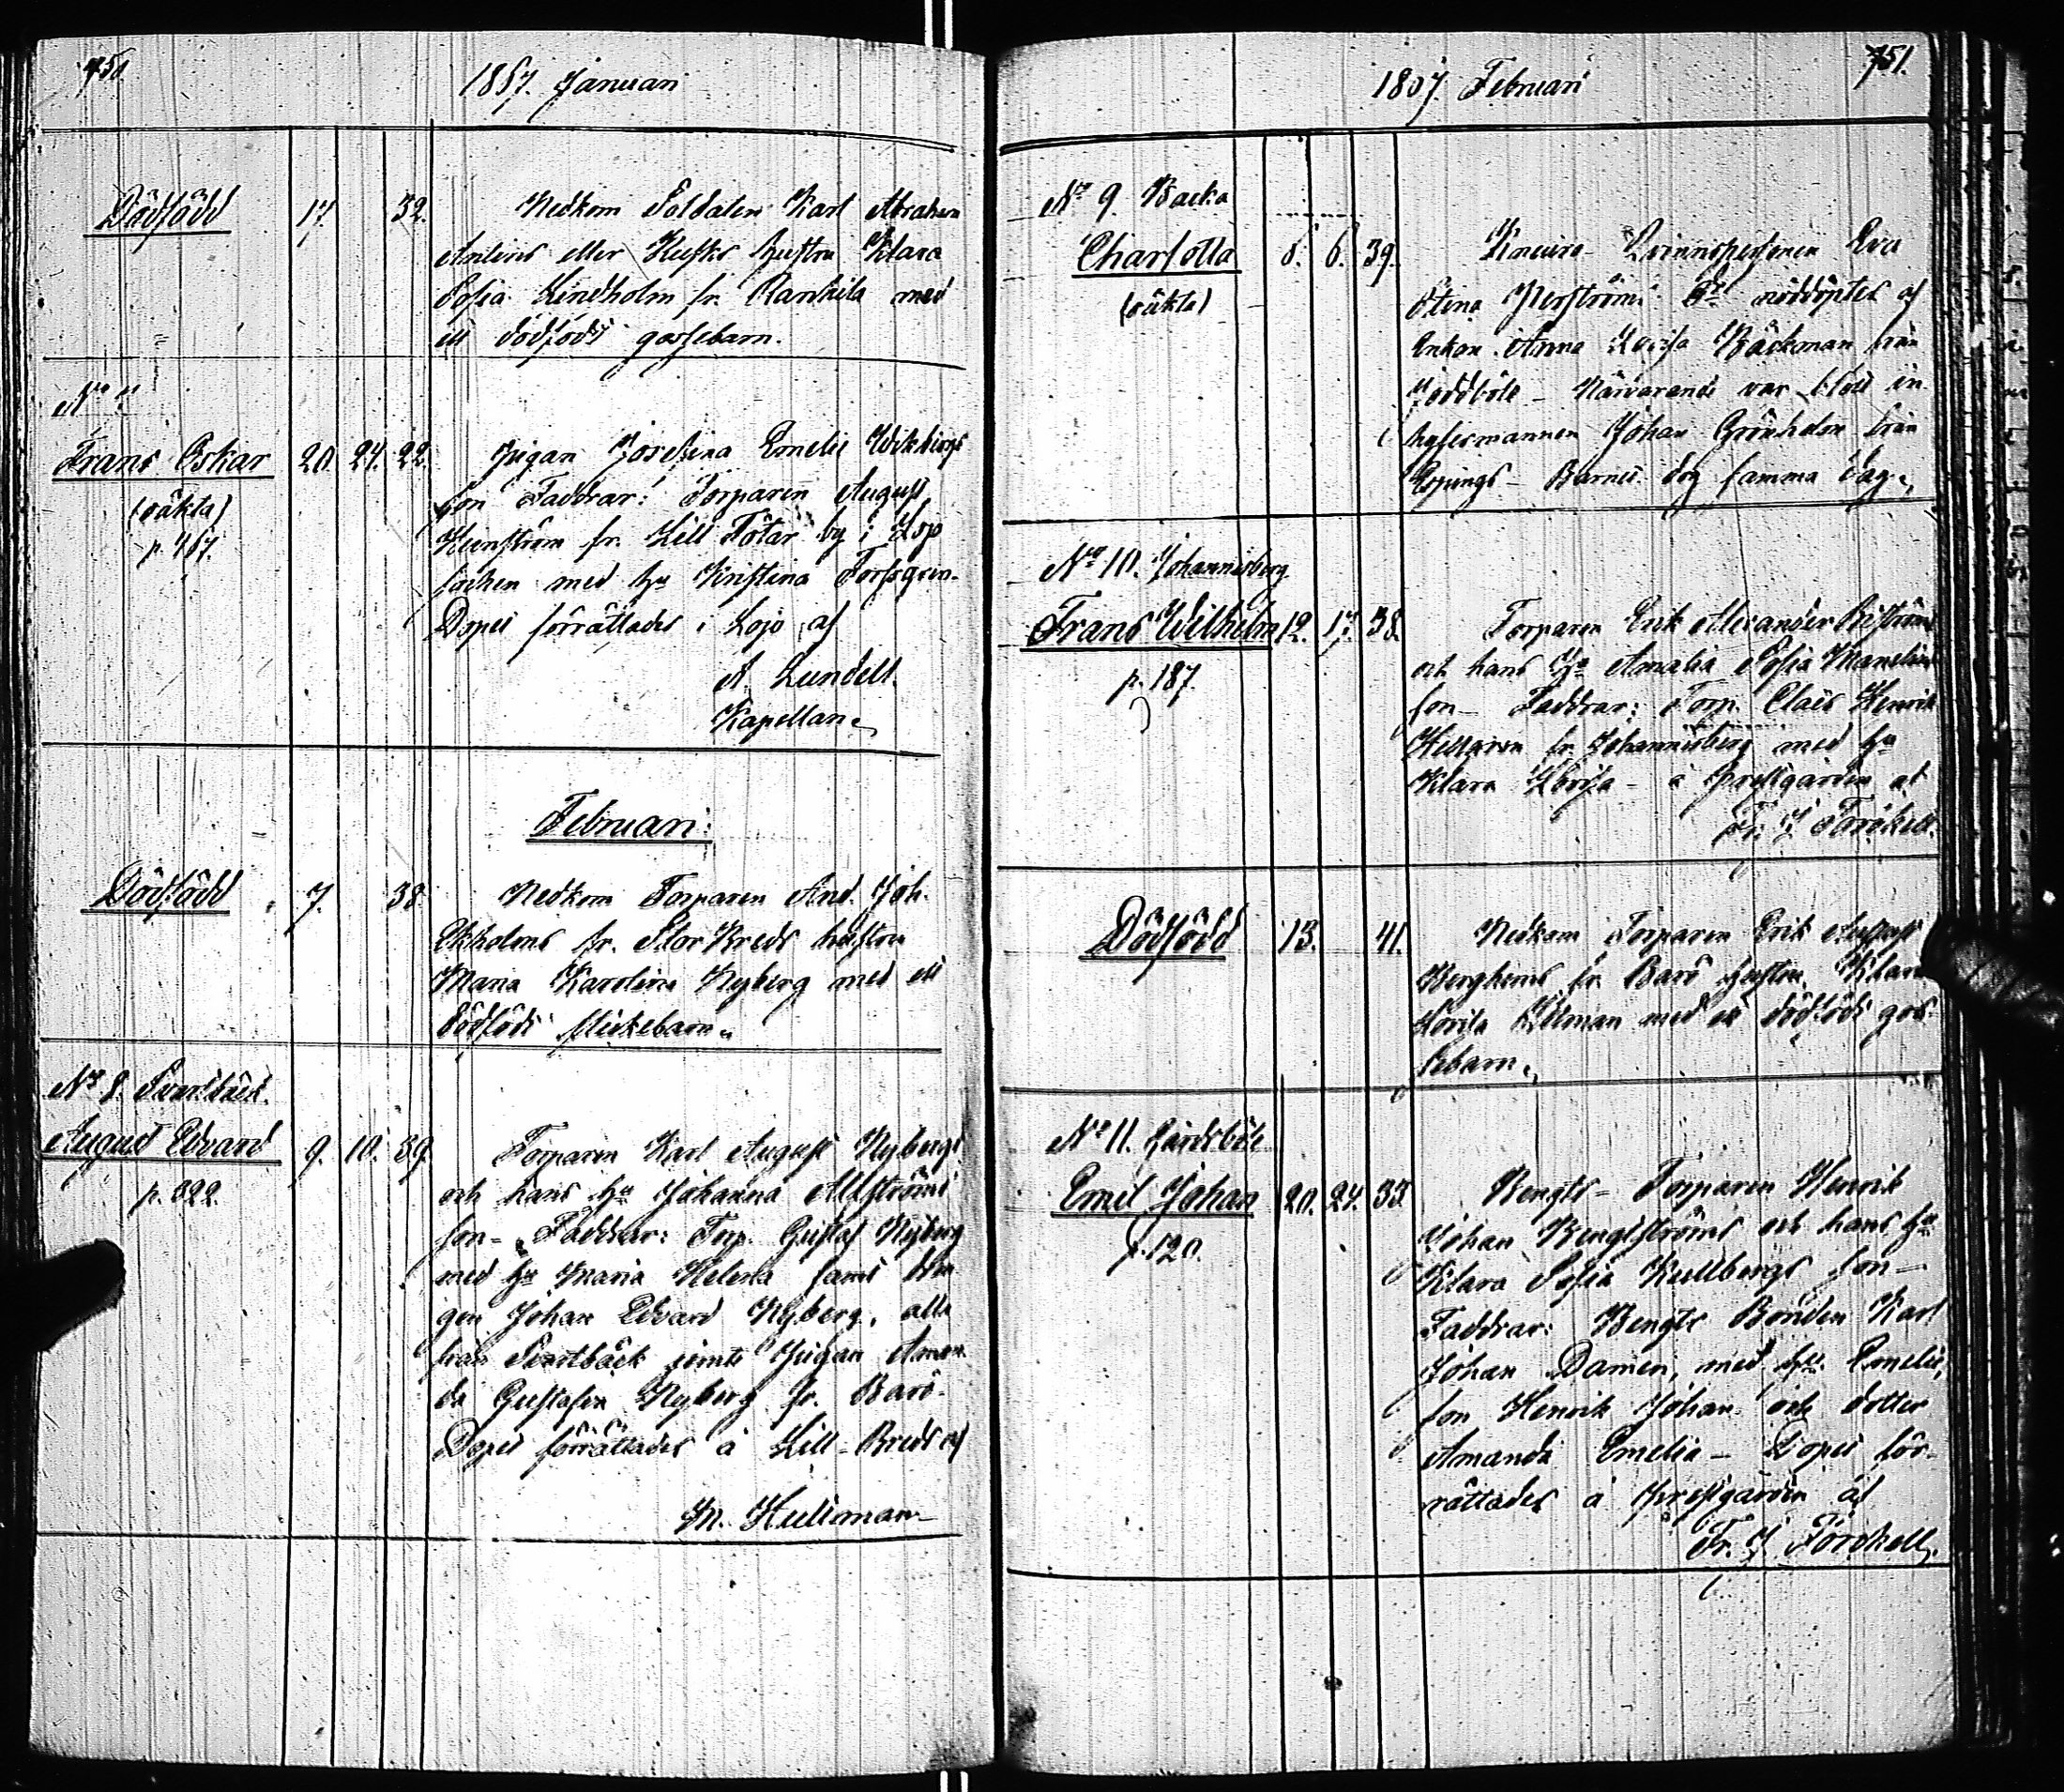 750
1857. Januari
Dödfödd 17. 32. Nedkom Soldaten Karl Abraham
eller hustru Klara
Sofia Lindholm fr. med
ett dödfödt gossebarn.
No
Frans Oskar 20. 24. 22. Pigan Josefina Emelie Wikbergs
(oäkta) son Faddrar: Torparen August
p. 467. fr. Lill by i Lojo
socken med hu Kristina Forsgren.
Dopet förrättades i Lojo af
A. Lundell.
Kapellan.
Februari:
Dödfödd 7. 38. Nedkom Torparen And. Joh.
Ekholms fr. Stor Breds hustru
Maria Karolina Nyberg med ett
dödfödt flickebarn.
No 8. Svartbäck.
August Edvard 9. 10. 39. Torparen Karl August Nybergs
p. 322. och hans hu Johanna Ahlströms
son - Faddrar: Torp. Gustaf Nyberg
med hu Maria Helena samt drän
gen Johan Edvard Nyberg, alla
från Svartbäck jemte Pigan Aman
da Gustafva Nyberg fr. Barö -
Dopet förrättades å Lill-Breds af
M. Hulimann
751.
1857. Februari
No 9. Backa
Charlotta 6. 6. 39. Qvinnspersonen Eva
(oäkta) Stina nöddöptes af
Enkan Anna Lovisa Bäckman från
Joddböle - Närvarande var blott in
hysesmannen Johan Grönholm från
Espings - Barnet dog samma dag.
No 10. Johannisberg
Frans Wilhelm 12. 17. 38. Torparen Erik Alexander
p. 187. och hans hu Amalia Sofia
son - Faddrar: Torp. Claës Henrik
Hellgren fr. Johannisberg med hu
Klara Lovisa - å prestgården af
Fr. J. Förskell.
Dödfödd 13. 41. Nedkom Torparen Erik August
Berghems fr. Barö hustru Klara
Lovisa med ett dödfödt gos-
sebarn.
No 11. Gårdsböle
Emil Johan 20. 24. 33. Bengts - Torparen Henrik
p. 120. Johan Bengtströms och hans hu
Klara Sofia Kullbergs son -
Faddrar: Bengts Bonden Karl
Johan Damén, med hu Emelie,
son Henrik Johan och dotter
Amanda Emelia - Dopet för-
rättades å prestgården af
Fr. J. Förskell.